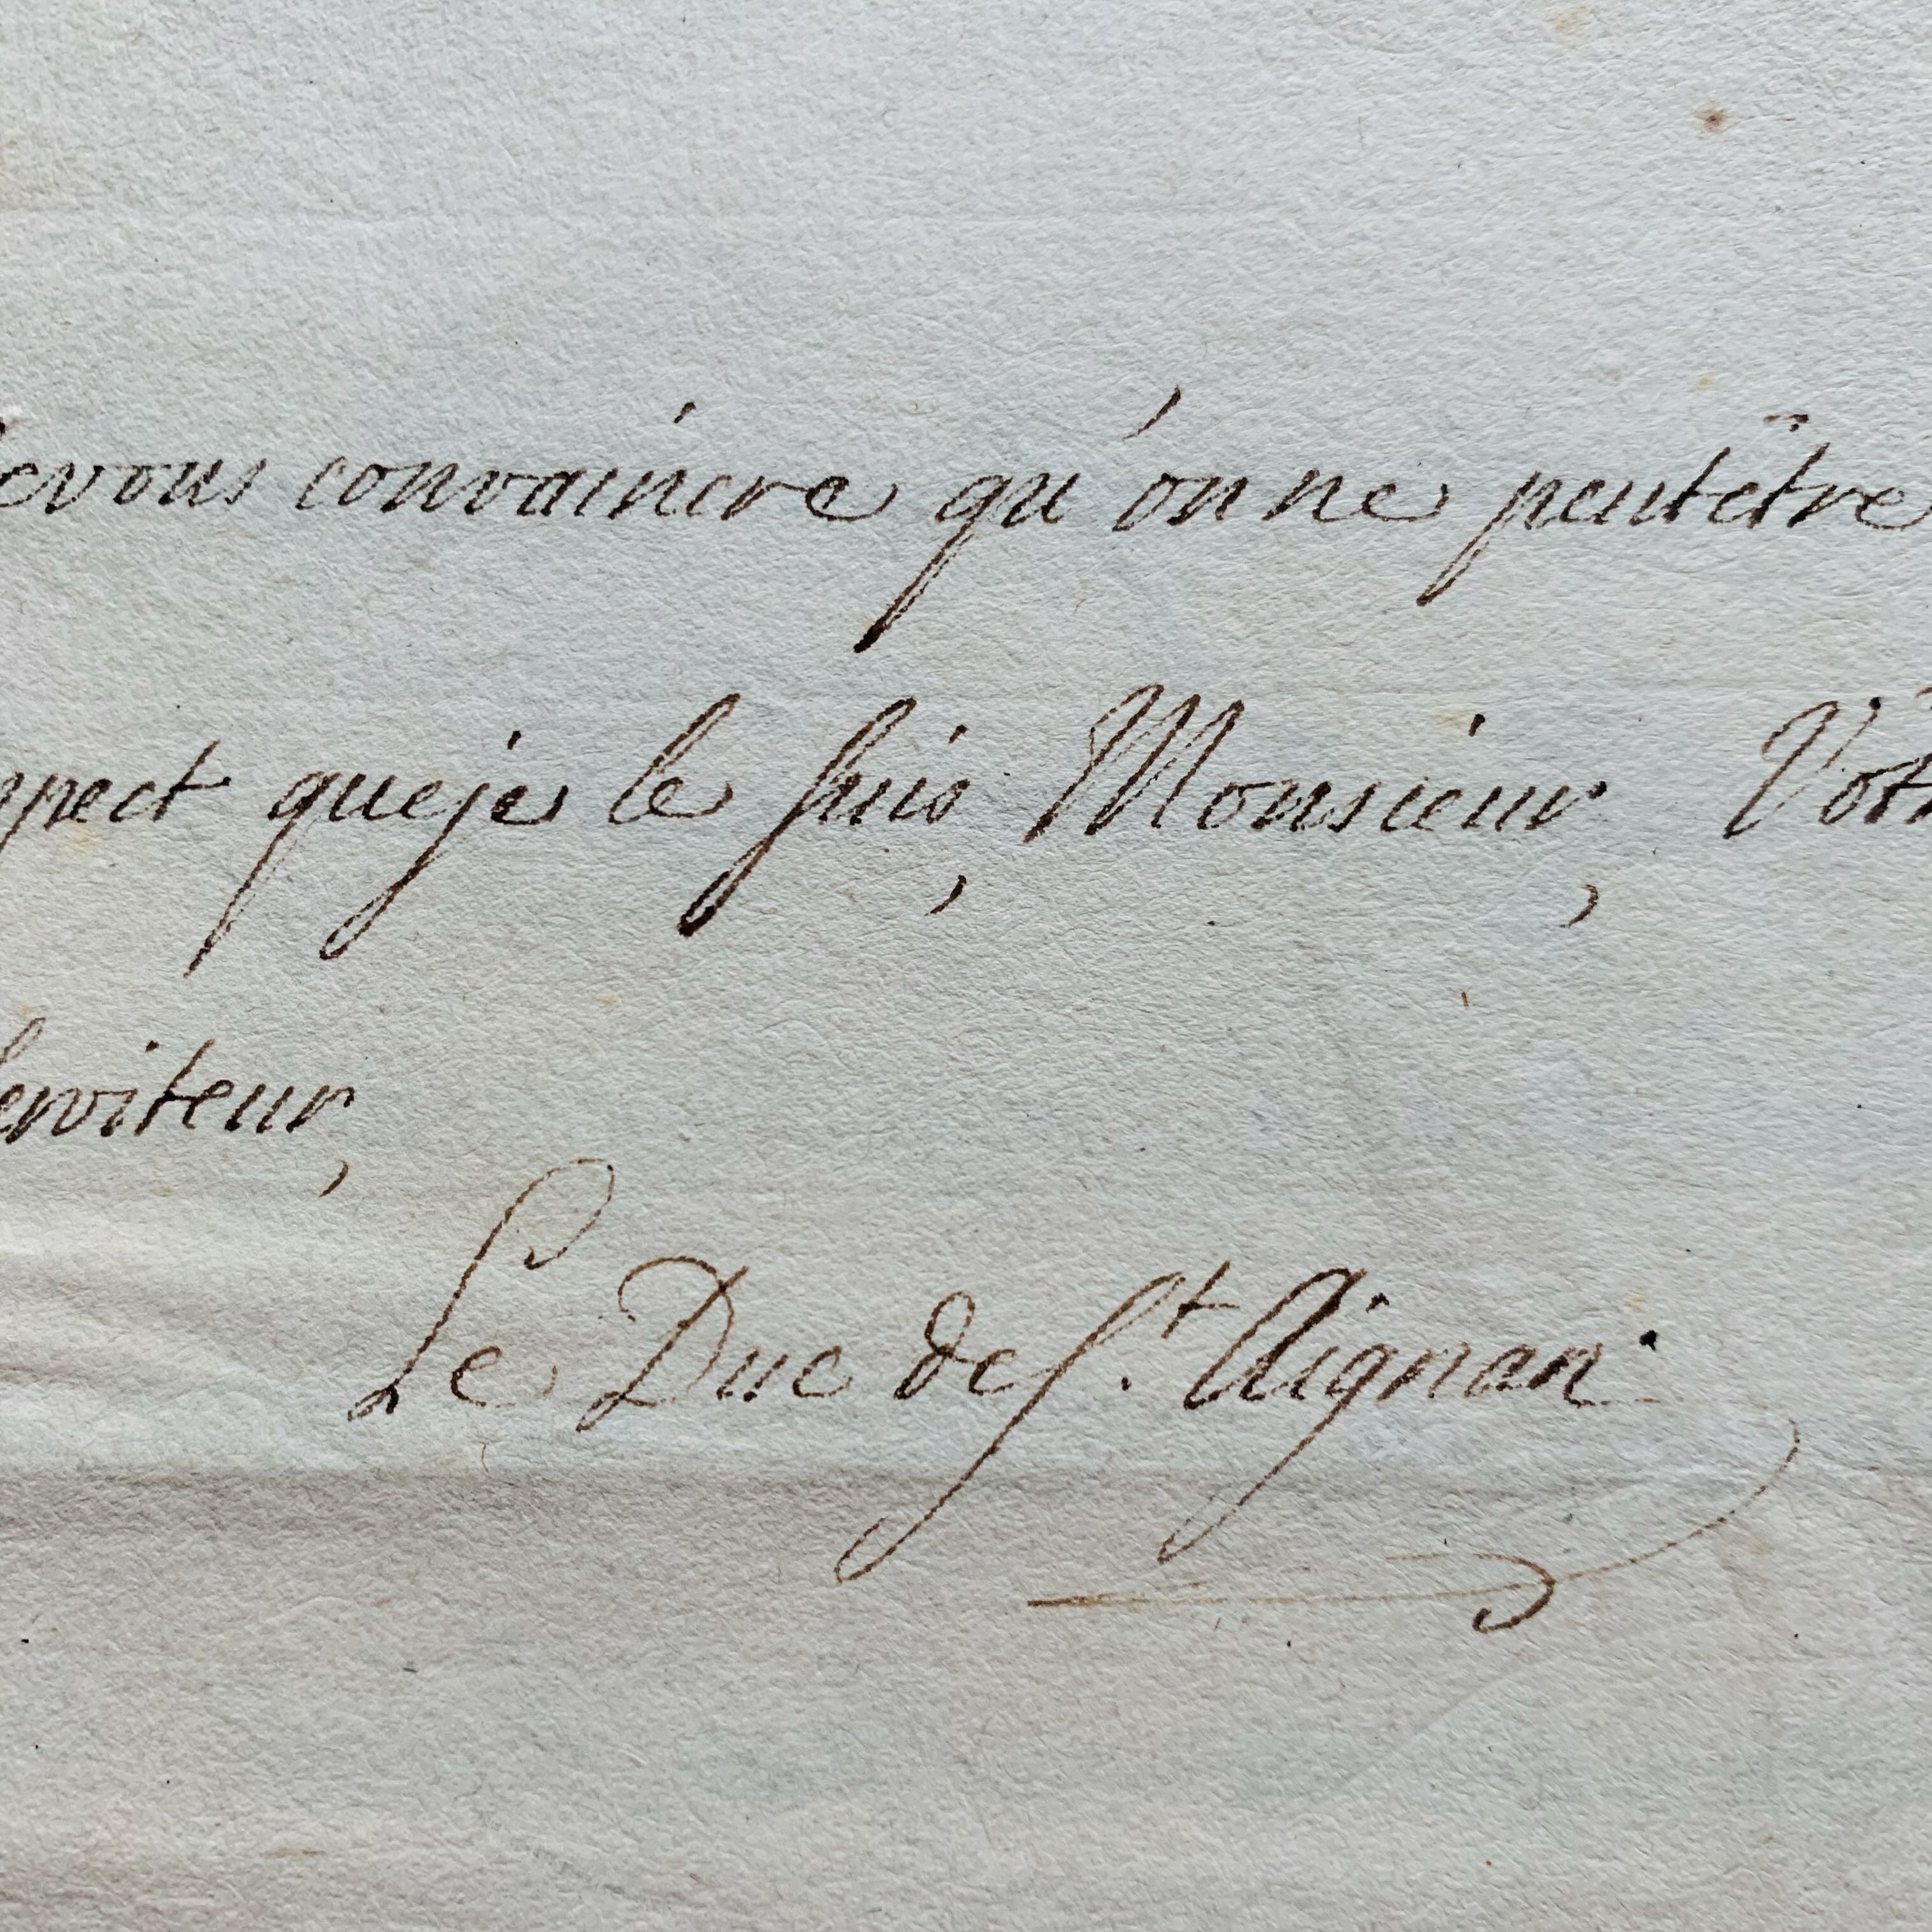 evous convaincre qu'on ne peutêtre
spect queje le suis, Monsieur, Votr
serviteur,
Le Duc de St. Aignan.